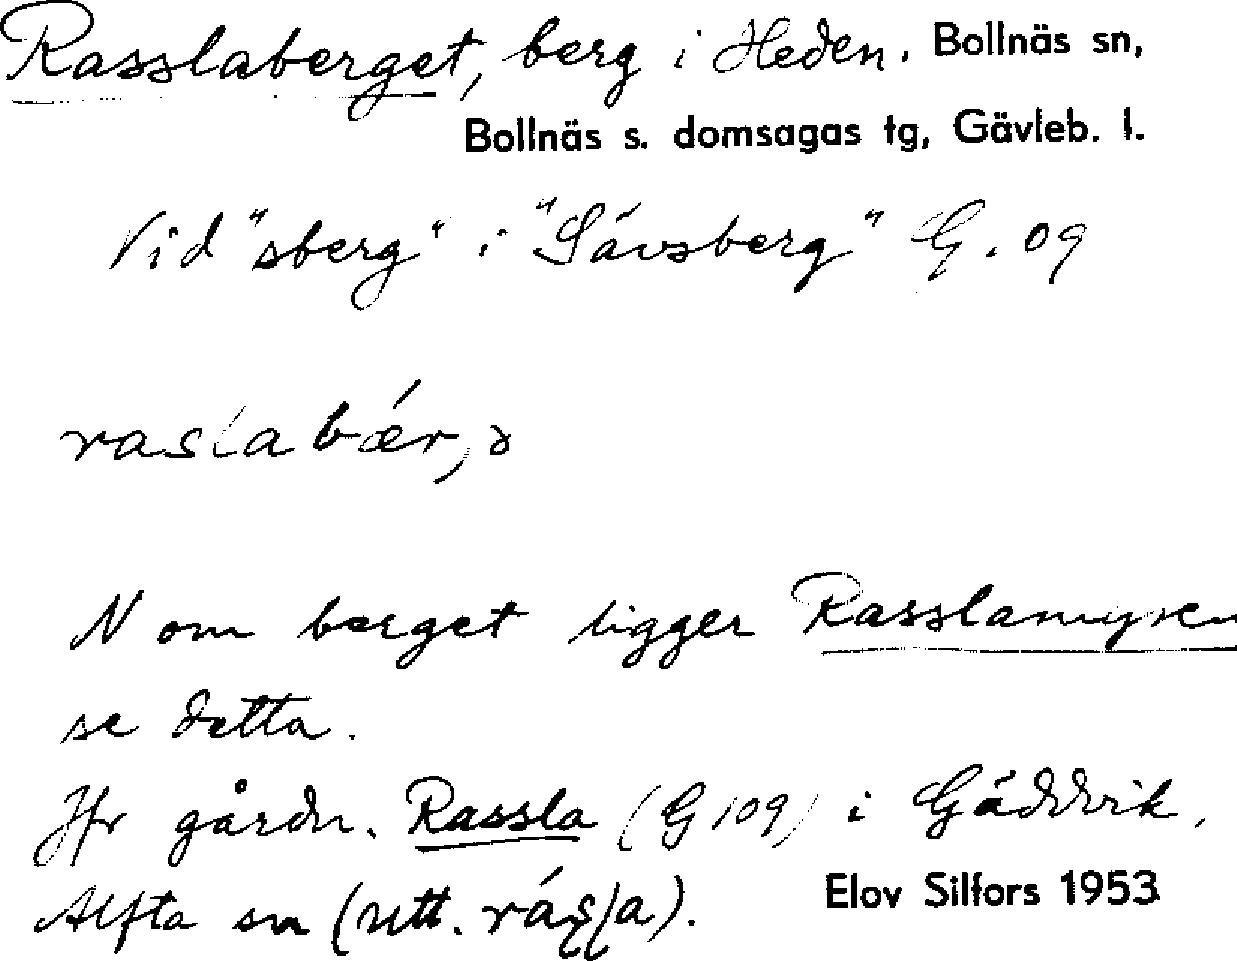 Rasslaberget, berg i Heden. Bollnäs sn,
Bollnäs s. domsagas tg, Gävleb. l.
Vid "sberg" i "Sävsberg" G. 09
raslabǽr,ə
N om berget ligger Rasslamyren
se detta.
Jfr gårdn. Rassla (G 109) i Gäddvik,
Alfta sn (utt.
Elov Silfors 1953